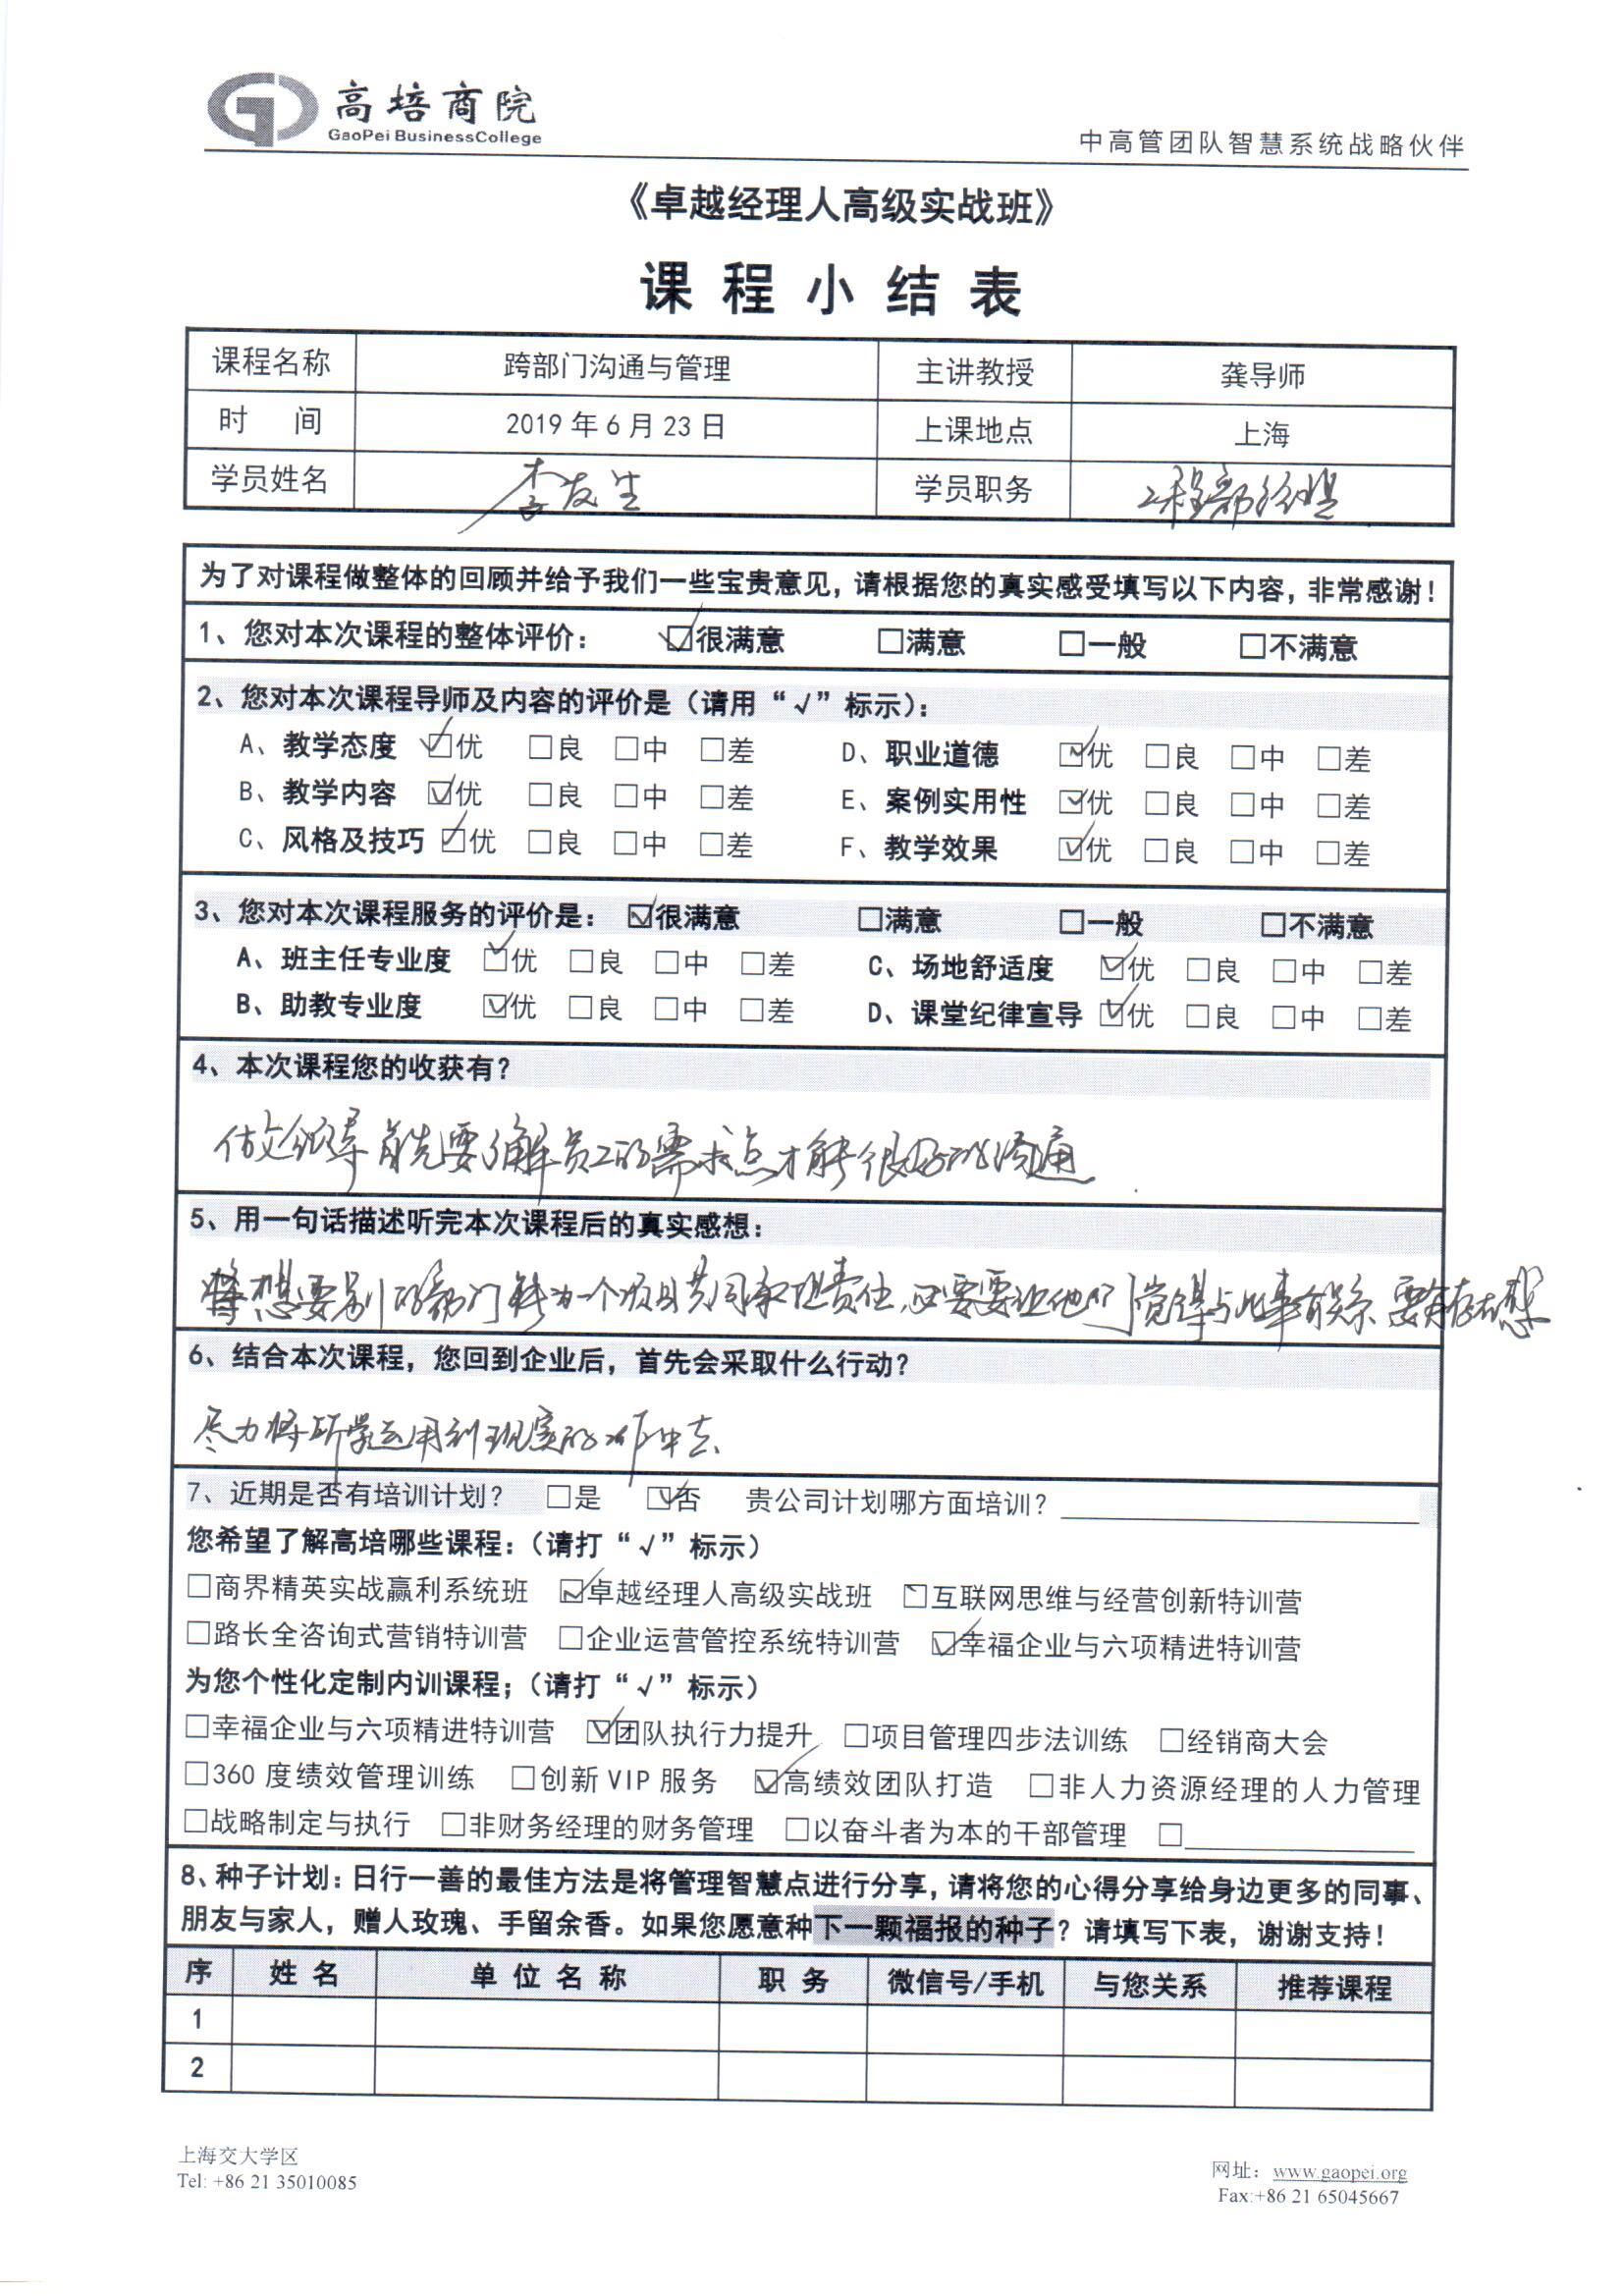 高培商院
GaoPei BusinessCollege
中高管团队智慧系统战略伙伴
《卓越经理人高级实战班》
课程小结表
课程名称 跨部门沟通与管理 主讲教授 龚导师
时 间 2019年6月23日 上课地点 上海
学员姓名 李友生 学员职务 工程部经理
为了对课程做整体的回顾并给予我们一些宝贵意见，请根据您的真实感受填写以下内容，非常感谢！
1、您对本次课程的整体评价： ☑很满意 □满意 □一般 □不满意
2、您对本次课程导师及内容的评价是（请用“√”标示）：
A、教学态度 ☑优 □良 □中 □差 D、职业道德 ☑优 □良 □中 □差
B、教学内容 ☑优 □良 □中 □差 E、案例实用性 ☑优 □良 □中 □差
C、风格及技巧 ☑优 □良 □中 □差 F、教学效果 ☑优 □良 □中 □差
3、您对本次课程服务的评价是： ☑很满意 □满意 □一般 □不满意
A、班主任专业度 ☑优 □良 □中 □差 C、场地舒适度 ☑优 □良 □中 □差
B、助教专业度 ☑优 □良 □中 □差 D、课堂纪律宣导 ☑优 □良 □中 □差
4、本次课程您的收获有？
做领导首先要了解员工的需求点才能很好的沟通
5、用一句话描述听完本次课程后的真实感想：
将想要别的部门转为一个项目共同承担责任，必要要让他们觉得与此事有关系 要有存在感
6、结合本次课程，您回到企业后，首先会采取什么行动？
尽力将所学运用到现实的工作中去
7、近期是否有培训计划？ □是 ☑否 贵公司计划哪方面培训？
您希望了解高培哪些课程：（请打“√”标示）
□商界精英实战赢利系统班 ☑卓越经理人高级实战班 □互联网思维与经营创新特训营
□路长全咨询式营销特训营 □企业运营管控系统特训营 ☑幸福企业与六项精进特训营
为您个性化定制内训课程；（请打“√”标示）
□幸福企业与六项精进特训营 ☑团队执行力提升 □项目管理四步法训练 □经销商大会
□360度绩效管理训练 □创新VIP服务 ☑高绩效团队打造 □非人力资源经理的人力管理
□战略制定与执行 □非财务经理的财务管理 □以奋斗者为本的干部管理 □
8、种子计划：日行一善的最佳方法是将管理智慧点进行分享，请将您的心得分享给身边更多的同事、
朋友与家人，赠人玫瑰、手留余香。如果您愿意种下一颗福报的种子？请填写下表，谢谢支持！
序 姓名 单位名称 职务 微信号/手机 与您关系 推荐课程
1
2
上海交大学区
Tel: +86 21 35010085
网址：www.gaopei.org
Fax:+86 21 65045667